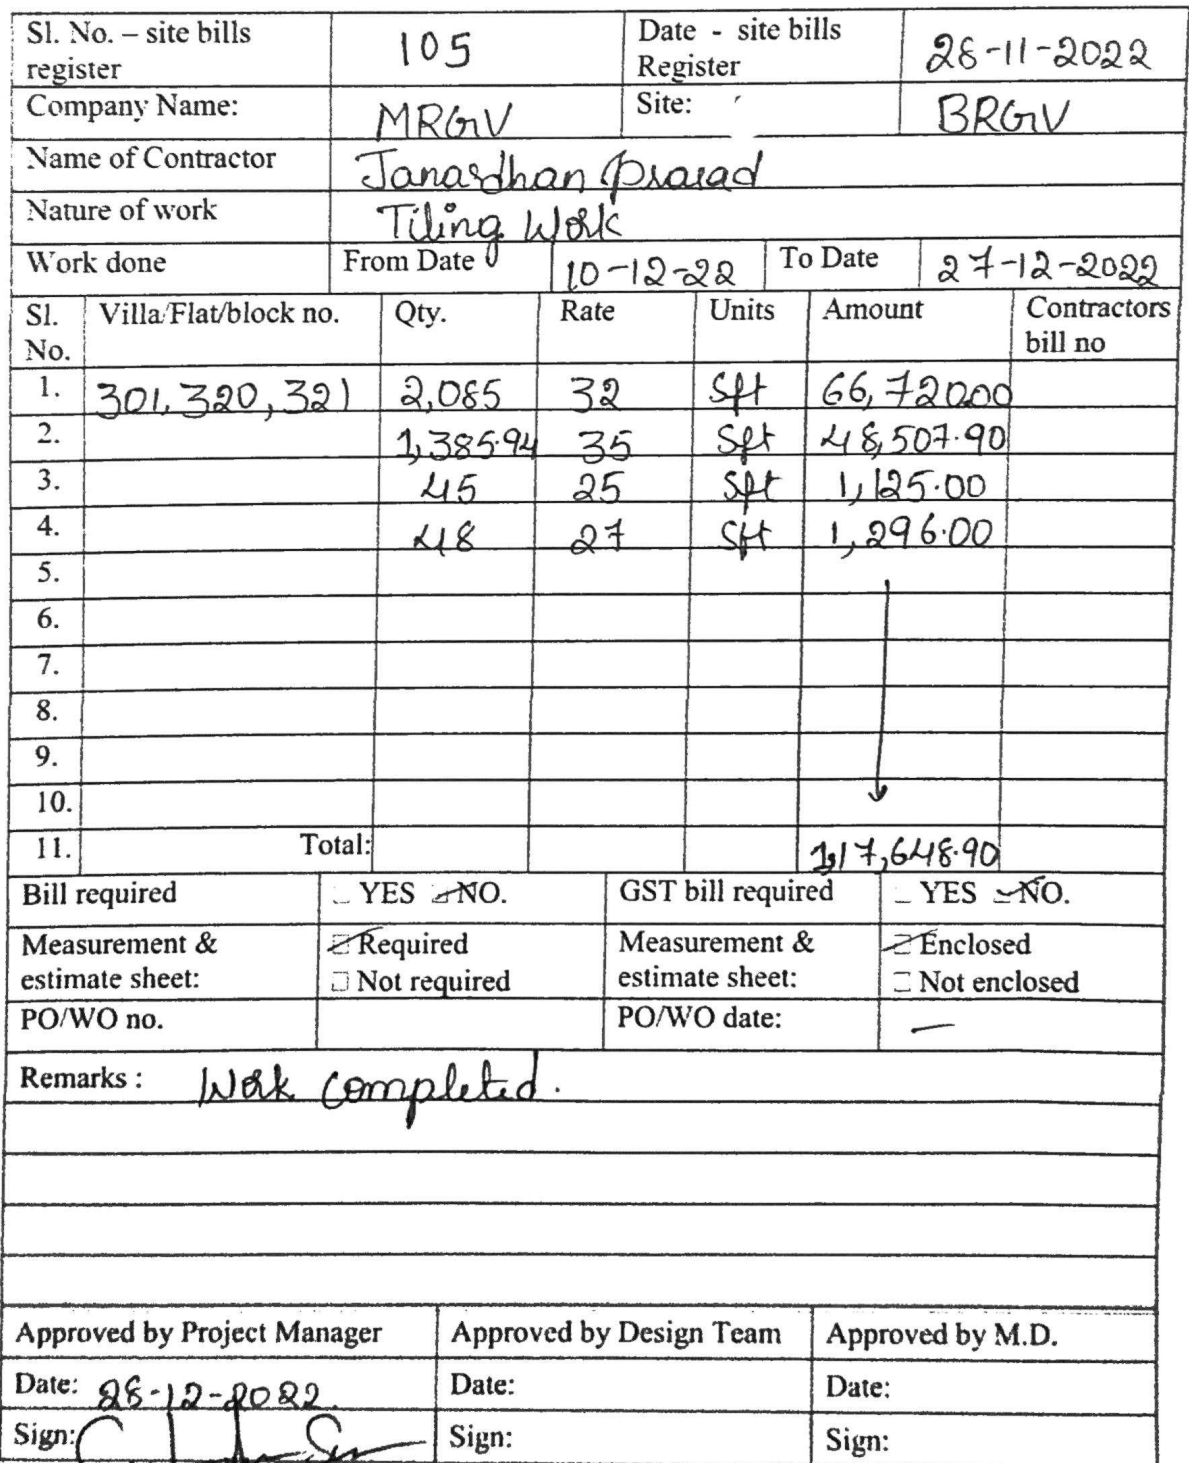 Sl. No. – site bills register 105 Date - site bills Register 28-11-2022
Company Name: MRGV Site: BRGV
Name of Contractor Janardhan Prasad
Nature of work Tiling Work
Work done From Date 10-12-22 To Date 27-12-2022
Sl. No. Villa/Flat/block no. Qty. Rate Units Amount Contractors bill no
1. 301, 320, 321 2,085 32 Sft 66,720.00
2. 1,385.94 35 Sft 48,507.90
3. 45 25 Sft 1,125.00
4. 48 27 Sft 1,296.00
5.
6.
7.
8.
9.
10.
11. Total: 1,17,648.90
Bill required YES NO. GST bill required YES NO.
Measurement & estimate sheet: Required Not required Measurement & estimate sheet: Enclosed Not enclosed
PO/WO no. PO/WO date: —
Remarks : Work Completed.
Approved by Project Manager Approved by Design Team Approved by M.D.
Date: 28-12-2022. Date: Date:
Sign: Sign: Sign: